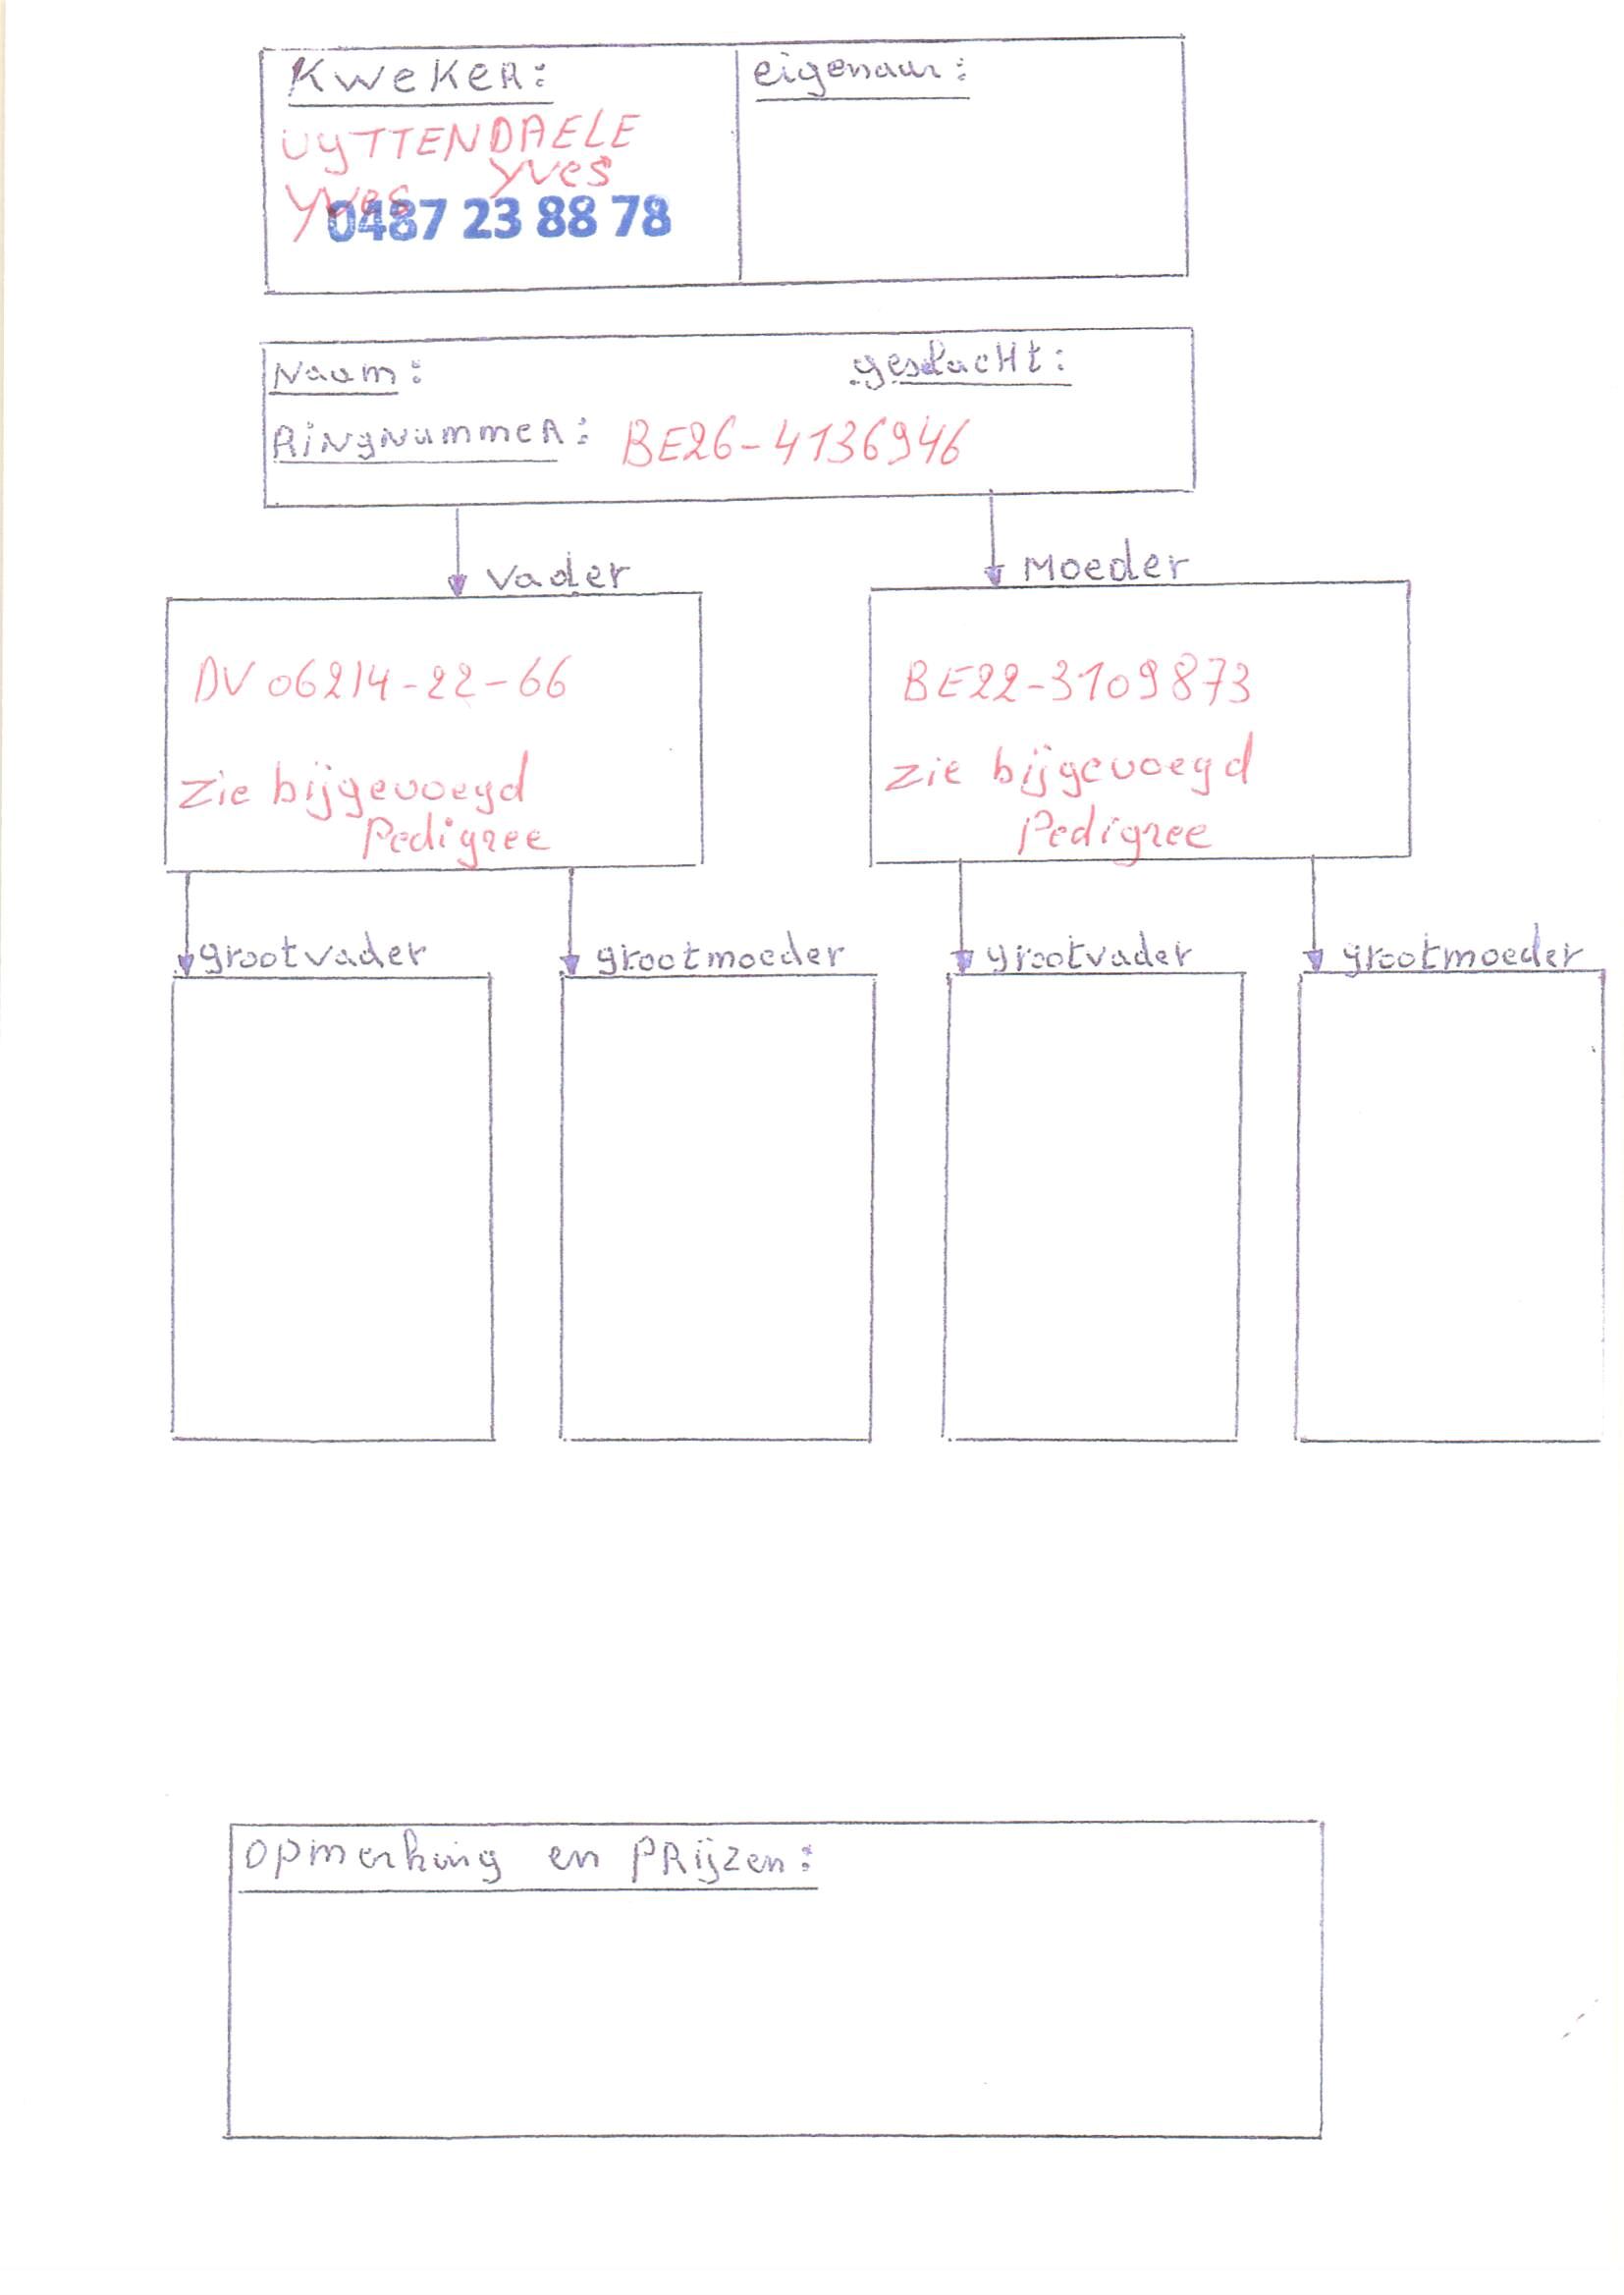 Kweker:
UYTTENDAELE
Yves
Yves
0487 23 88 78
eigenaar:
Naam:
geslacht:
Ringnummer: BE26-4136946
Vader
DV 06214-22-66
Zie bijgevoegd
Pedigree
Moeder
BE22-3109873
Zie bijgevoegd
Pedigree
grootvader
grootmoeder
grootvader
grootmoeder
opmerking en PRijzen: